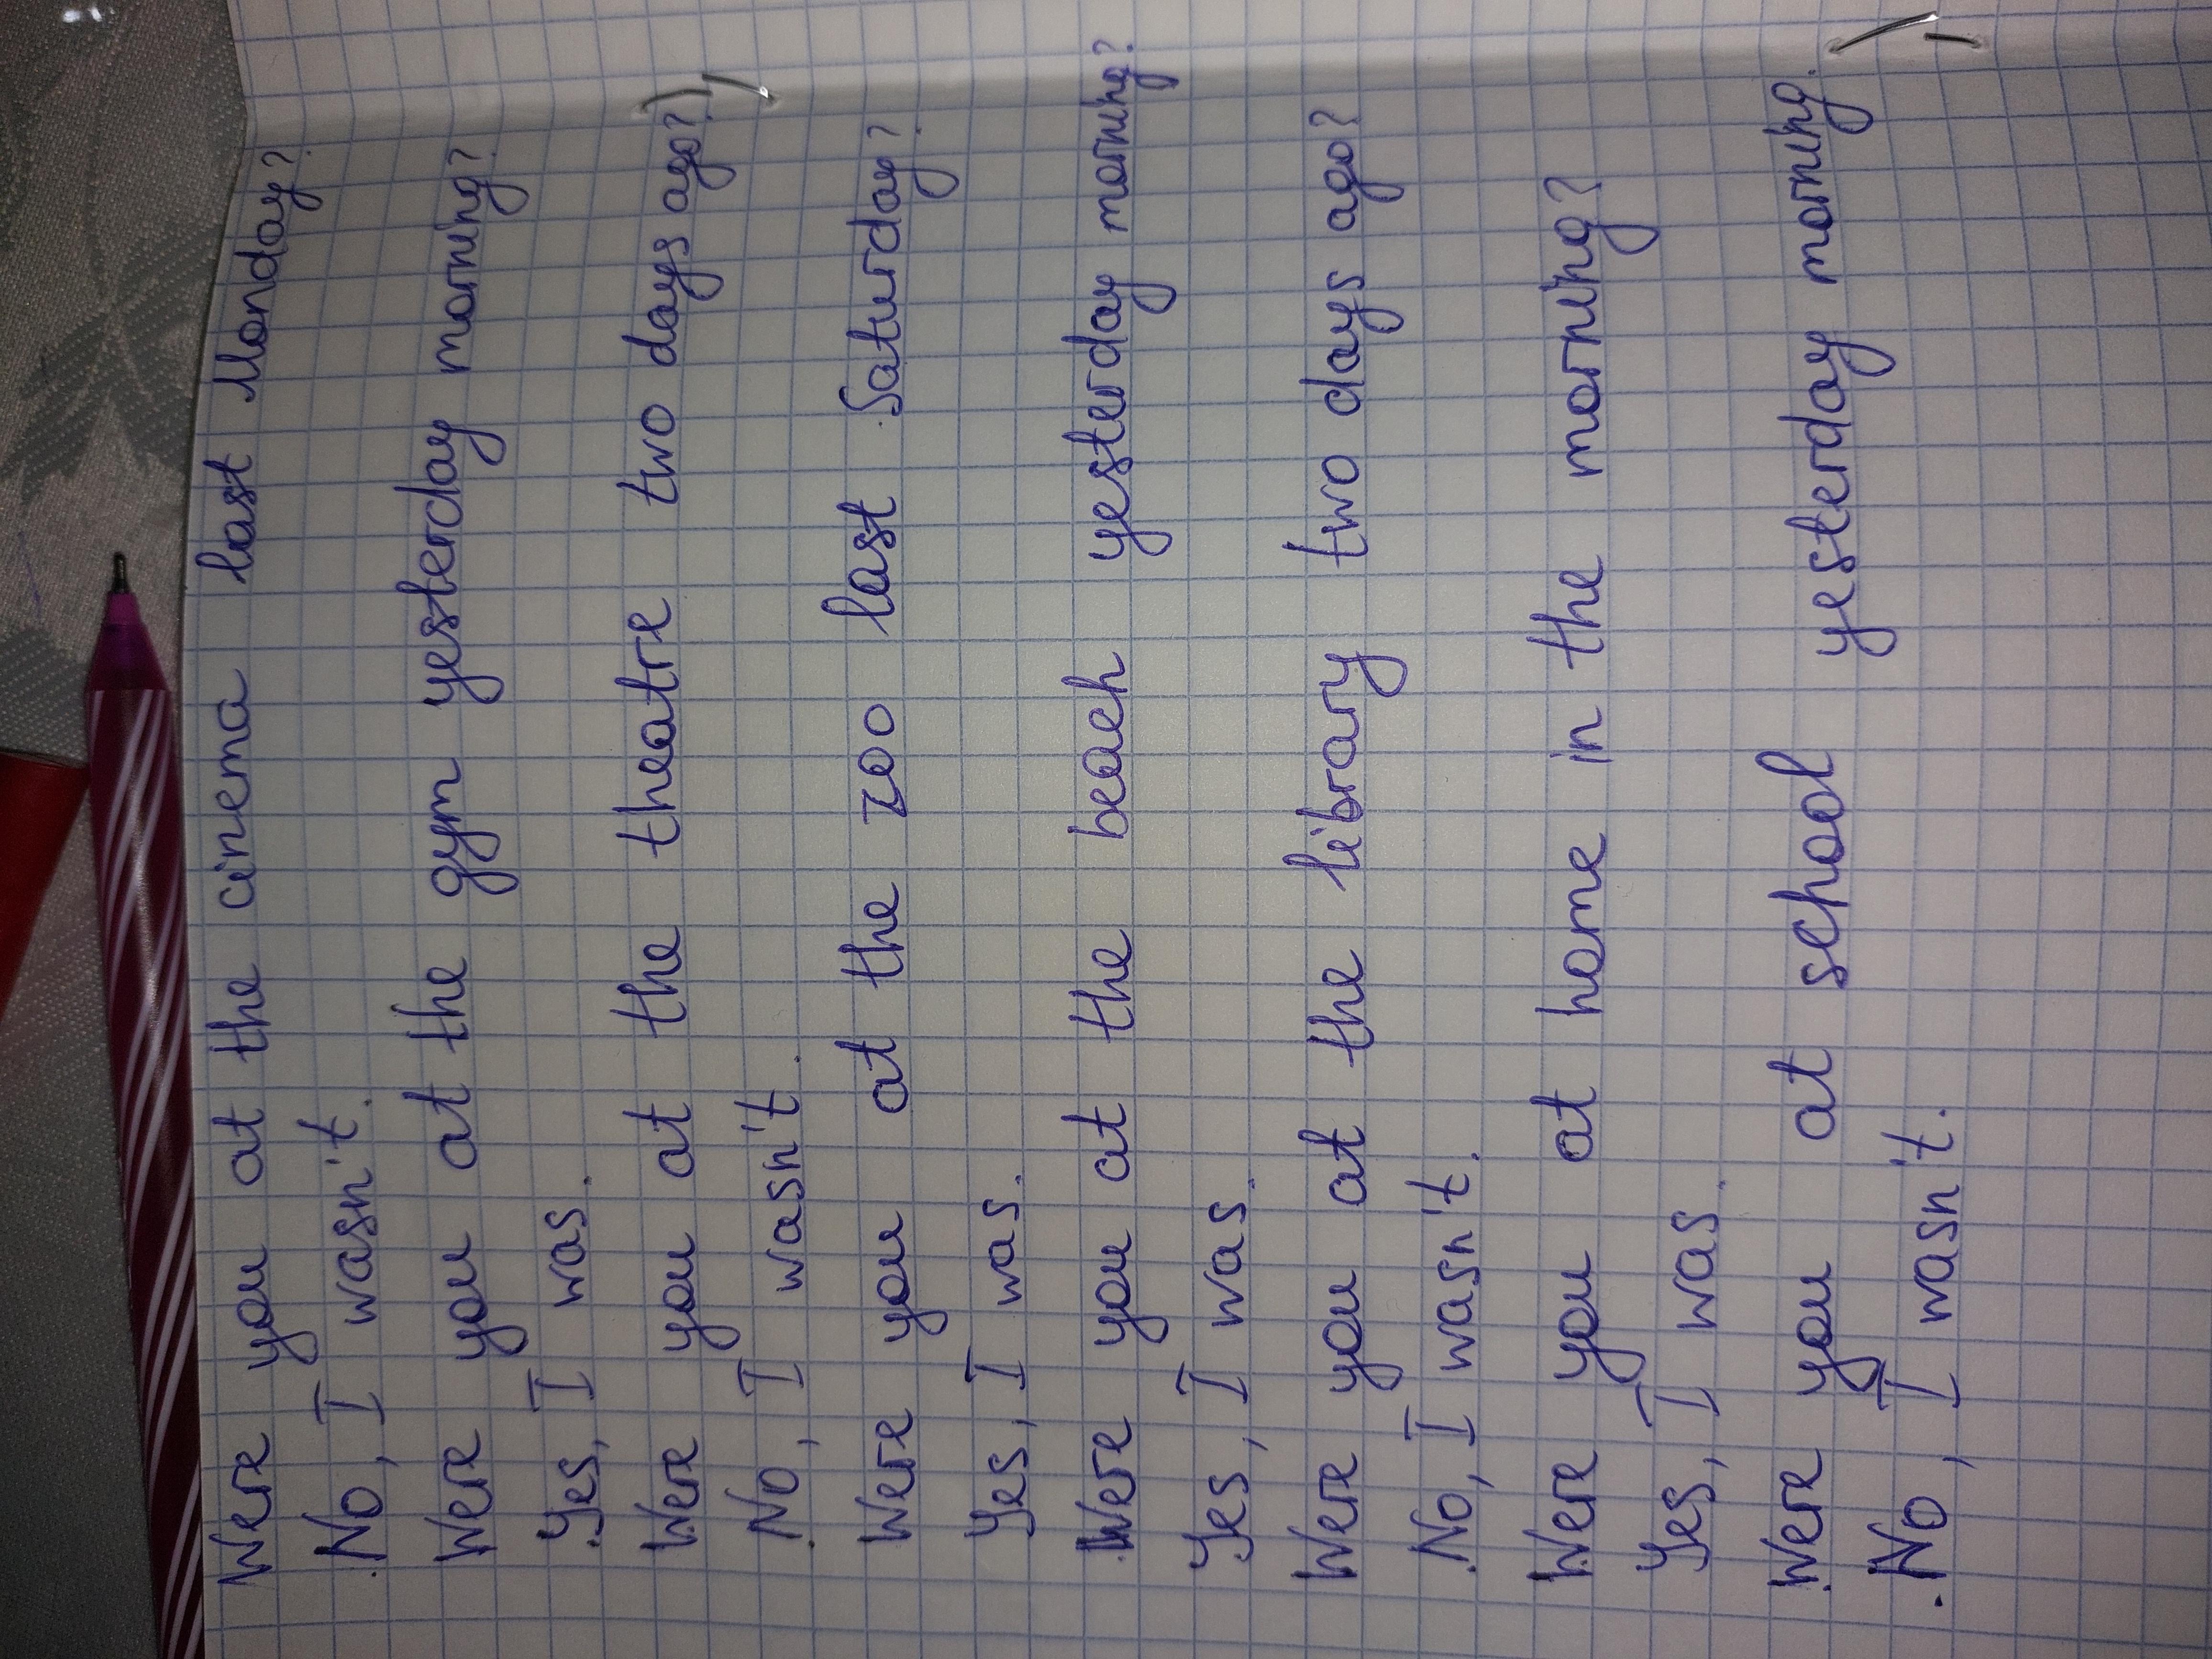 Were you at the cinema last Monday?
No, I wasn't.
Were you at the gym yesterday morning?
Yes, I was.
Were you at the theatre two days ago?
No, I wasn't.
Were you at the zoo last Saturday?
Yes, I was.
Were you at the beach yesterday morning?
Yes, I was.
Were you at the library two days ago?
No, I wasn't.
Were you at home in the morning?
Yes, I was.
Were you at school yesterday morning.
No, I wasn't.